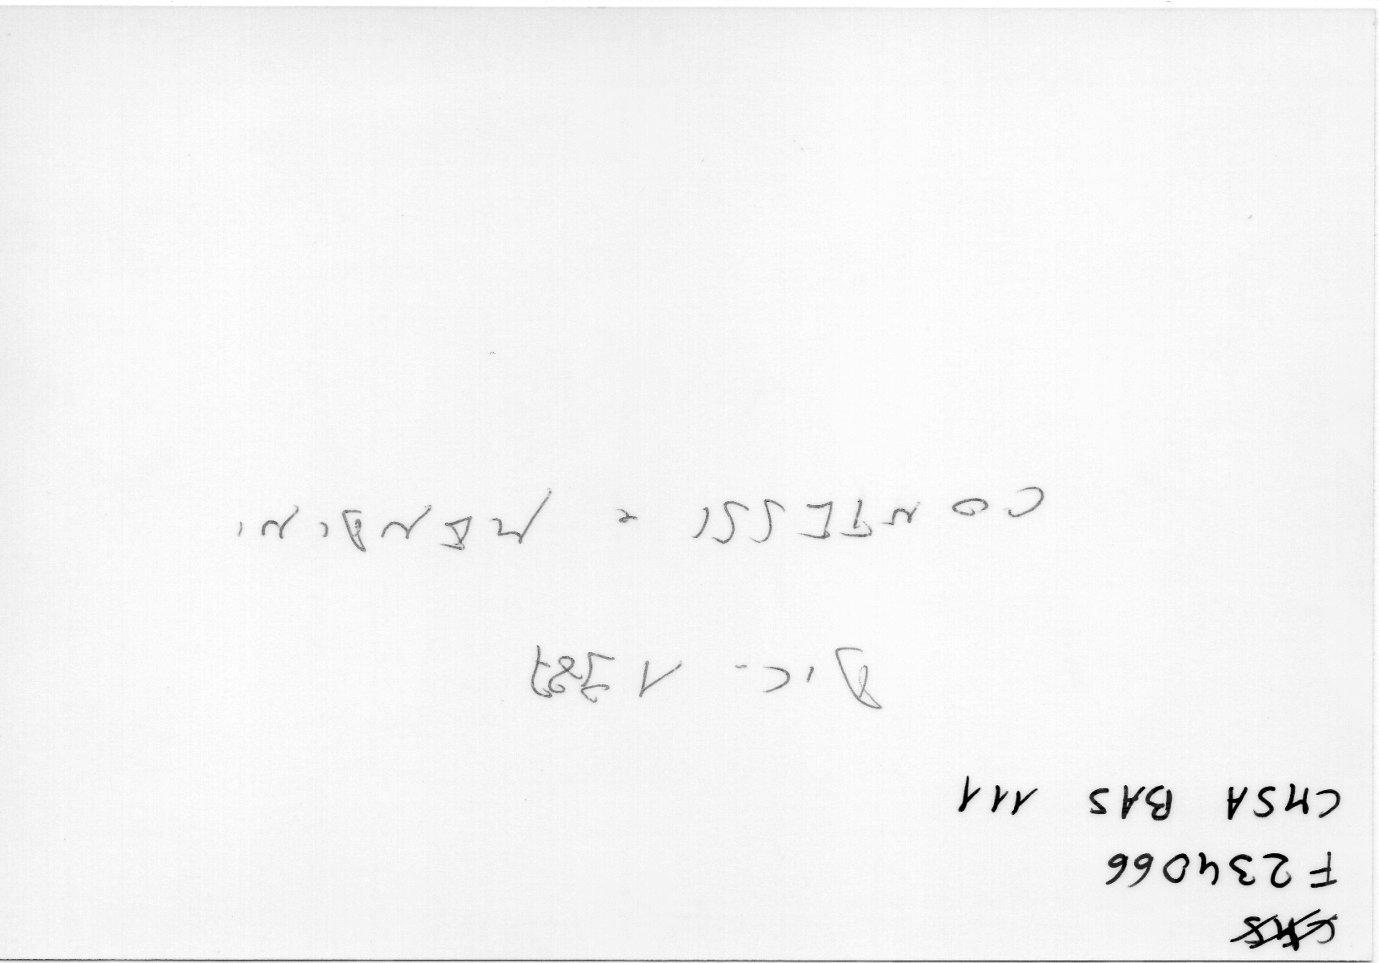 F234066
CMSA BAS 111
DIC. 1987
CONTESSI e MENDINI